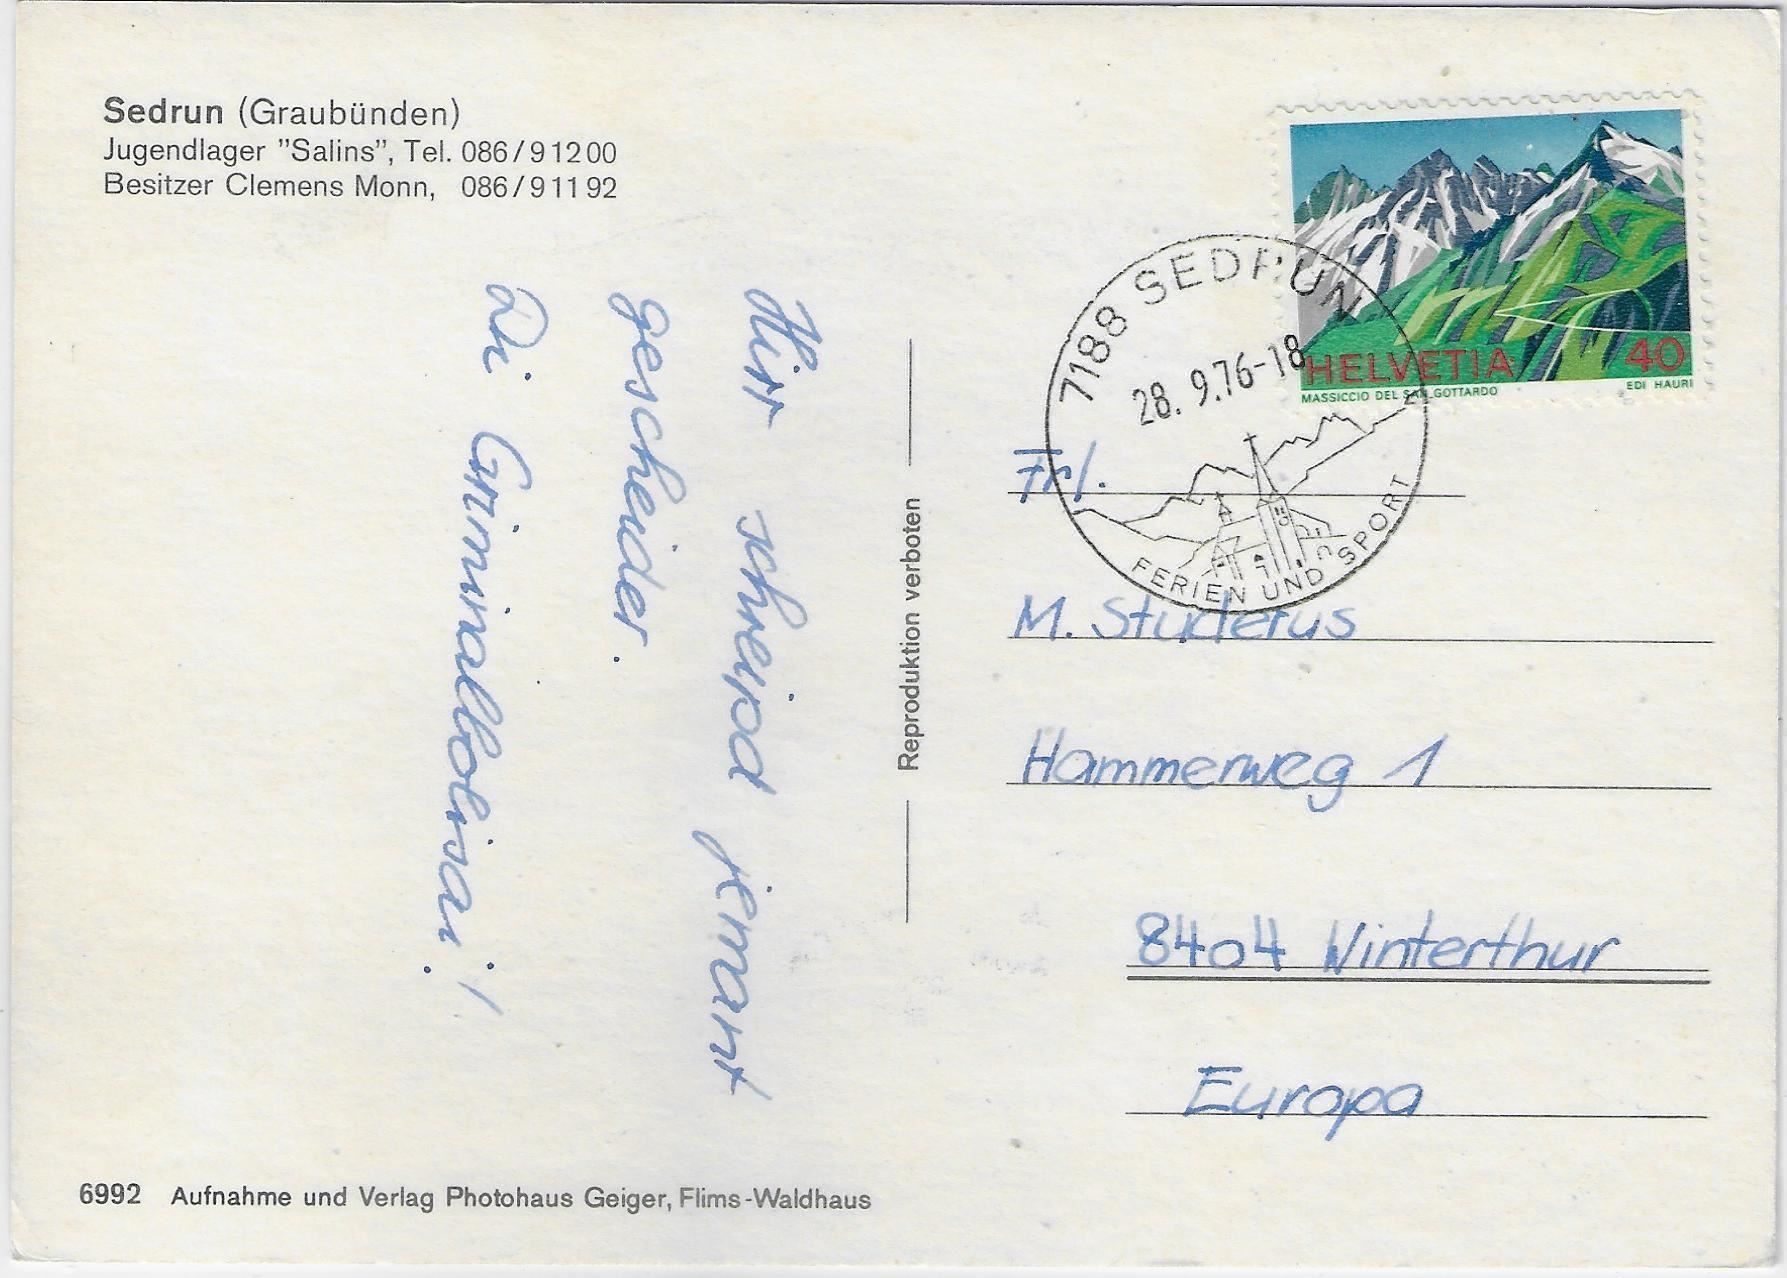 Sedrun (Graubünden)
Jugendlager "Salins", Tel. 086/91200
Besitzer Clemens Monn, 086/91192
Hirr schreipd jemant
gescheider.
Di Griminalbolisai!
Reproduktion verboten
HELVETIA 40
MASSICCIO DEL SAN GOTTARDO EDI HAURI
7188 SEDRUN
28. 9.76-18
FERIEN UND SPORT
Frl.
M. Studerus
Hammerweg 1
8404 Winterthur
Europa
6992 Aufnahme und Verlag Photohaus Geiger, Flims-Waldhaus